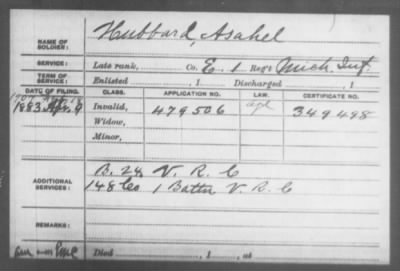 NAME OF SOLDIER: Hubbard, Asahel
SERVICE: Late rank, Co. E. 1 Reg't Mich. Inf.
TERM OF SERVICE: Enlisted , 1 Discharged , 1
DATE OF FILING. CLASS. APPLICATION NO. LAW. CERTIFICATE NO.
1883 Apr. 9 Invalid, 479506 349498
Widow,
Minor,
ADDITIONAL SERVICES: B. 24 V. R. C
148 Co 1 Battn V. R. C
REMARKS:
Died , 1 , at